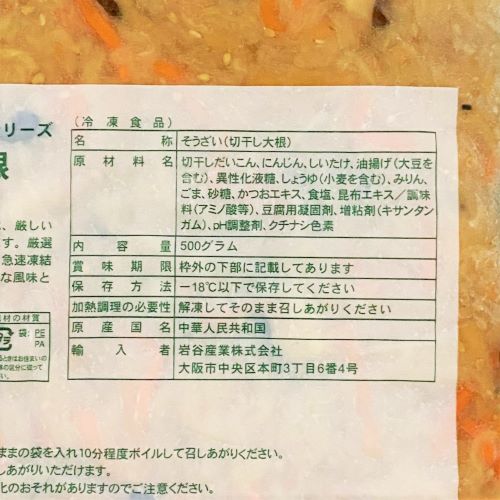 リーズ
根
、厳しい
す。厳選
急速凍結
な風味と
(冷凍食品)
名称 そうざい(切干し大根)
原材料名 切干しだいこん、にんじん、しいたけ、油揚げ(大豆を
含む)、異性化液糖、しょうゆ(小麦を含む)、みりん、
ごま、砂糖、かつおエキス、食塩、昆布エキス/調味
料(アミノ酸等)、豆腐用凝固剤、増粘剤(キサンタン
ガム)、pH調整剤、クチナシ色素
内容量 500グラム
賞味期限 枠外の下部に記載してあります
保存方法 −18℃以下で保存してください
加熱調理の必要性 解凍してそのまま召しあがりください
原産国名 中華人民共和国
輸入者 岩谷産業株式会社
大阪市中央区本町3丁目6番4号
材の材質
プラ 袋: PE
PA
るときはお住まいの
体の区分に従って
ままの袋を入れ10分程度ボイルして召しあがりください。
しあがりいただけます。
化のおそれがありますのでご注意ください。